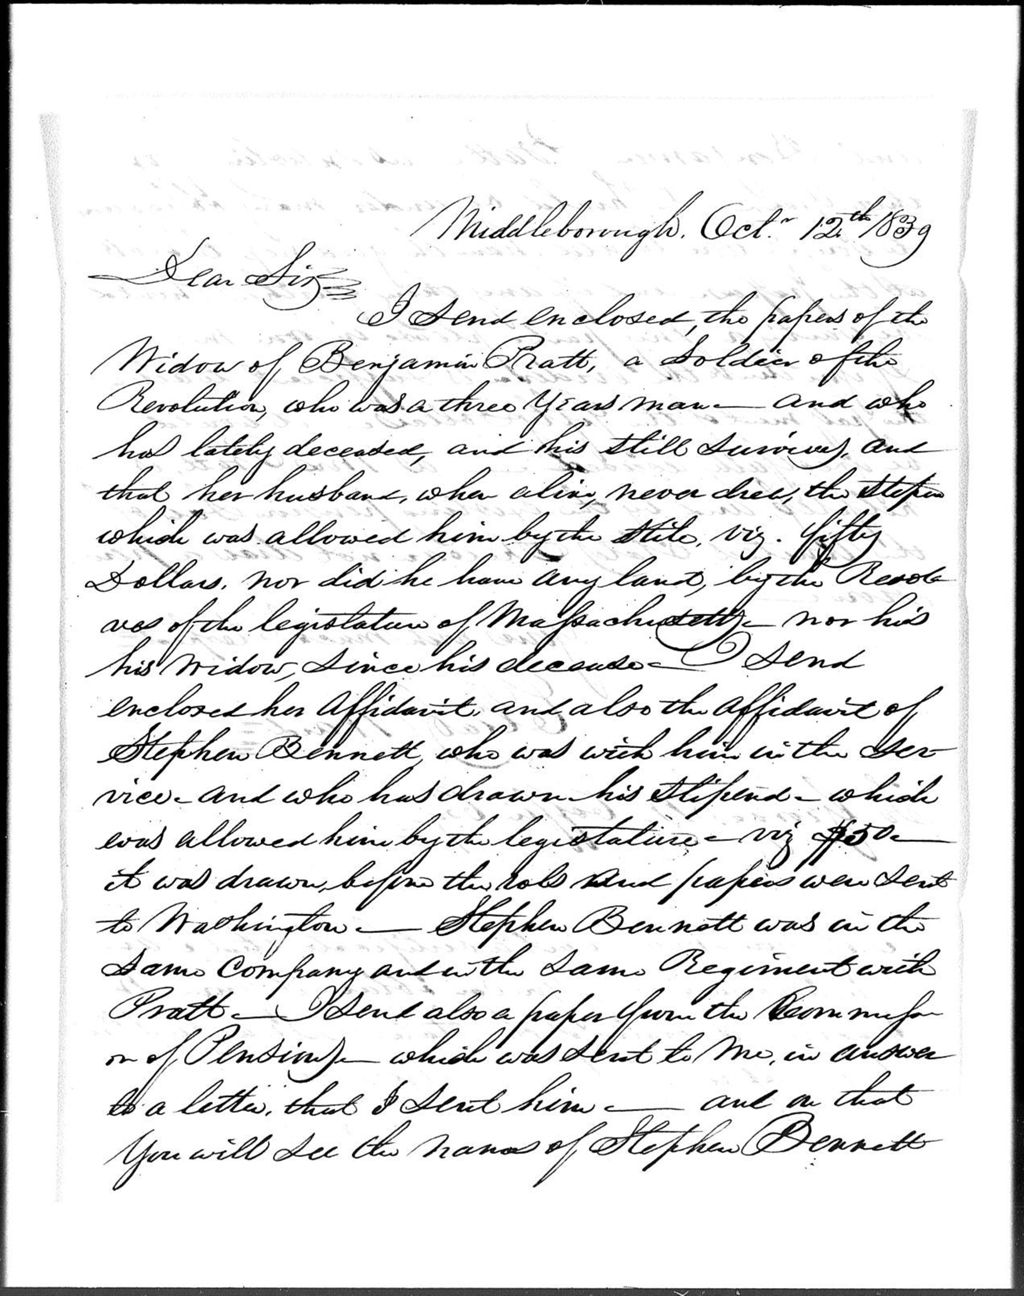 Middleborough. Oct.r 12th 1839
Dear Sir
I send enclosed, the papers of the
Widow of Benjamin Pratt, a soldier of the
Revolution, who was a three years man — and who
has lately deceased, and his still survives, and
that her husband, when alive, never drew, the
which was allowed him by the State, viz. fifty
Dollars. nor did he have any land, by the Resol-
ves of the legislature of Massachusetts — nor has
his Widow, since his decease — I send
enclosed her affidavit, and also the affidavit of
Stephen Bennett, who was with him in the ser-
vice — and who has drawn his stipend — which
was allowed him by the legistature — viz $50 —
it was drawn, before the rols and papers were sent
to Washington — Stephen Bennett was in the
same company and in the same Regiment with
Pratt — I send also a paper from the
on of Pensions — which was sent to me, in answer
to a letter, that I sent him — and on that
you will see the name of Stephen Bennett